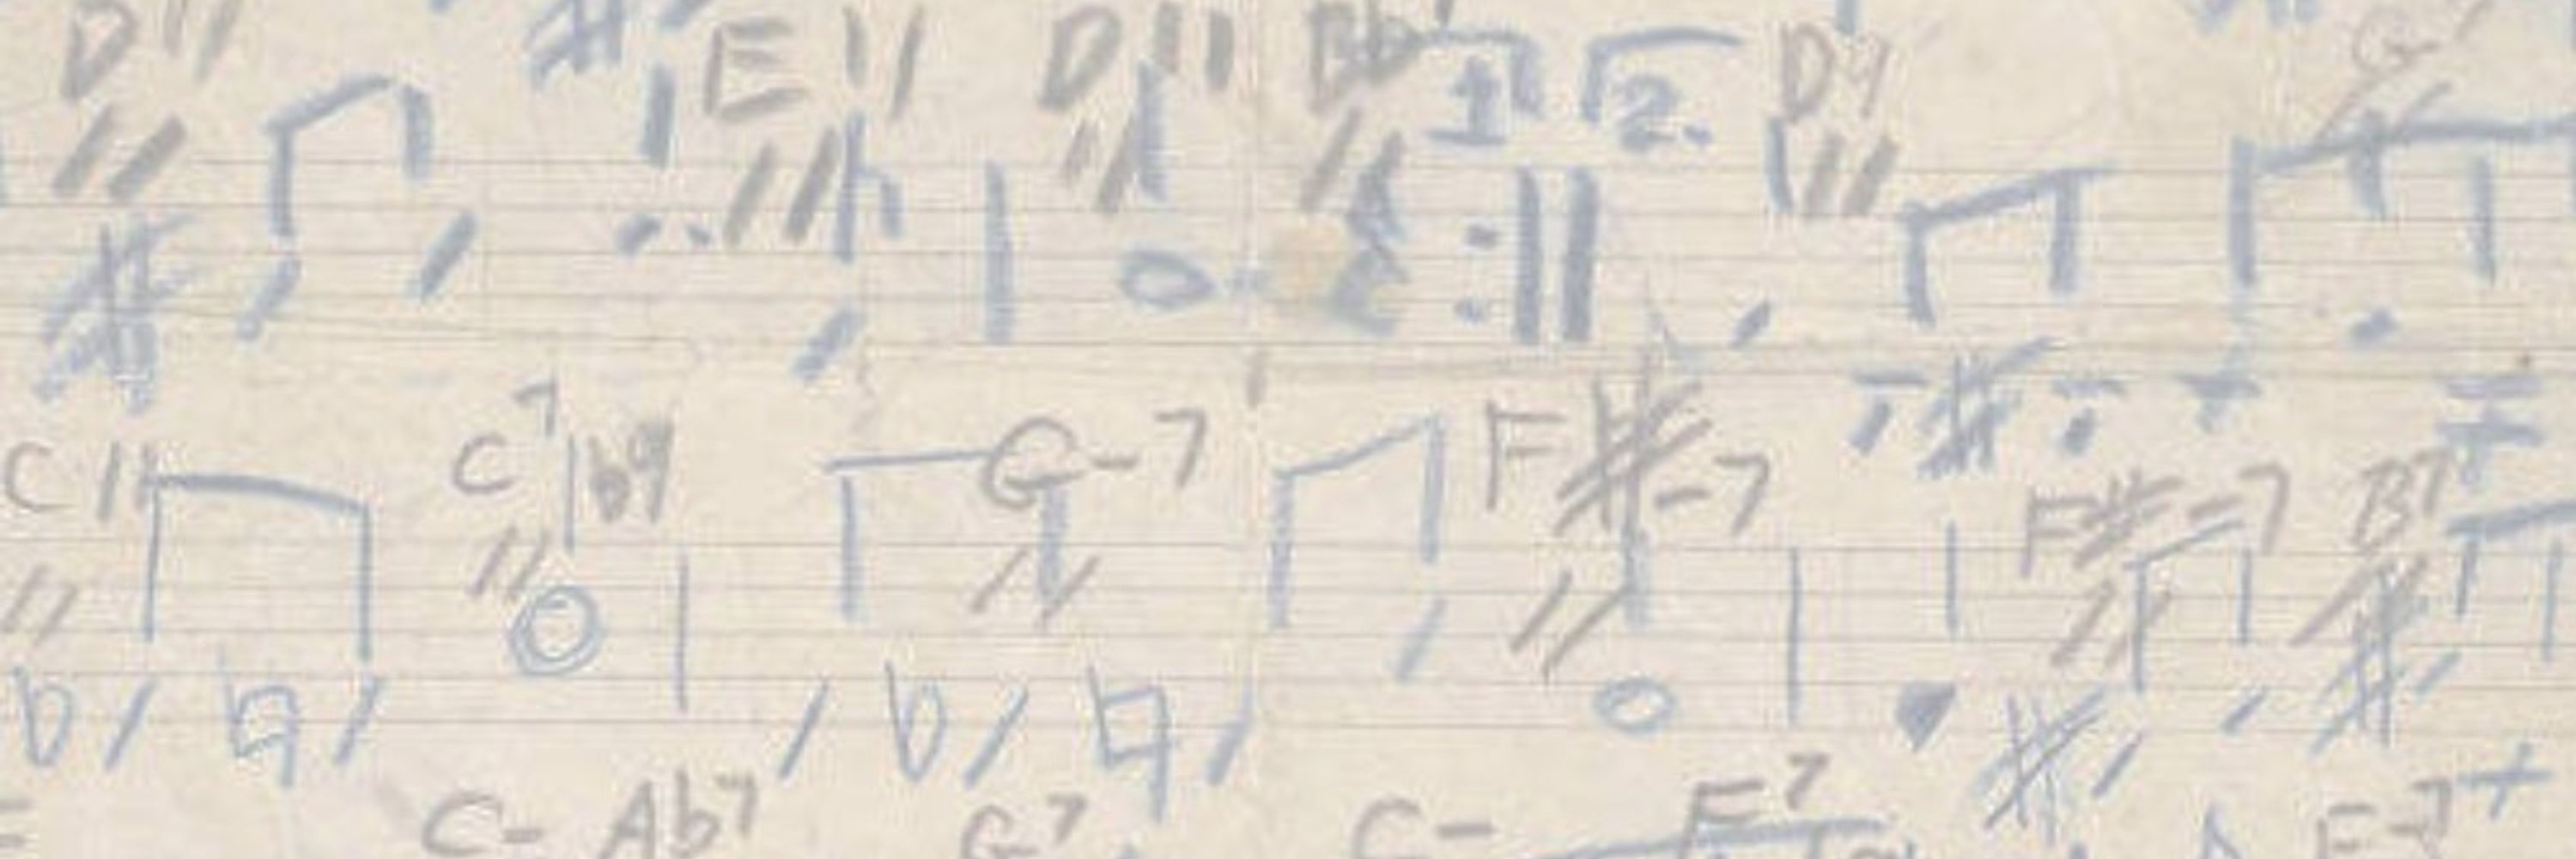 D11 E11 D11 Bb 1. 2. D9 G
C11 C7b9 G-7 F#-7 F#-7 B7
C- Ab7 G7 C- F7